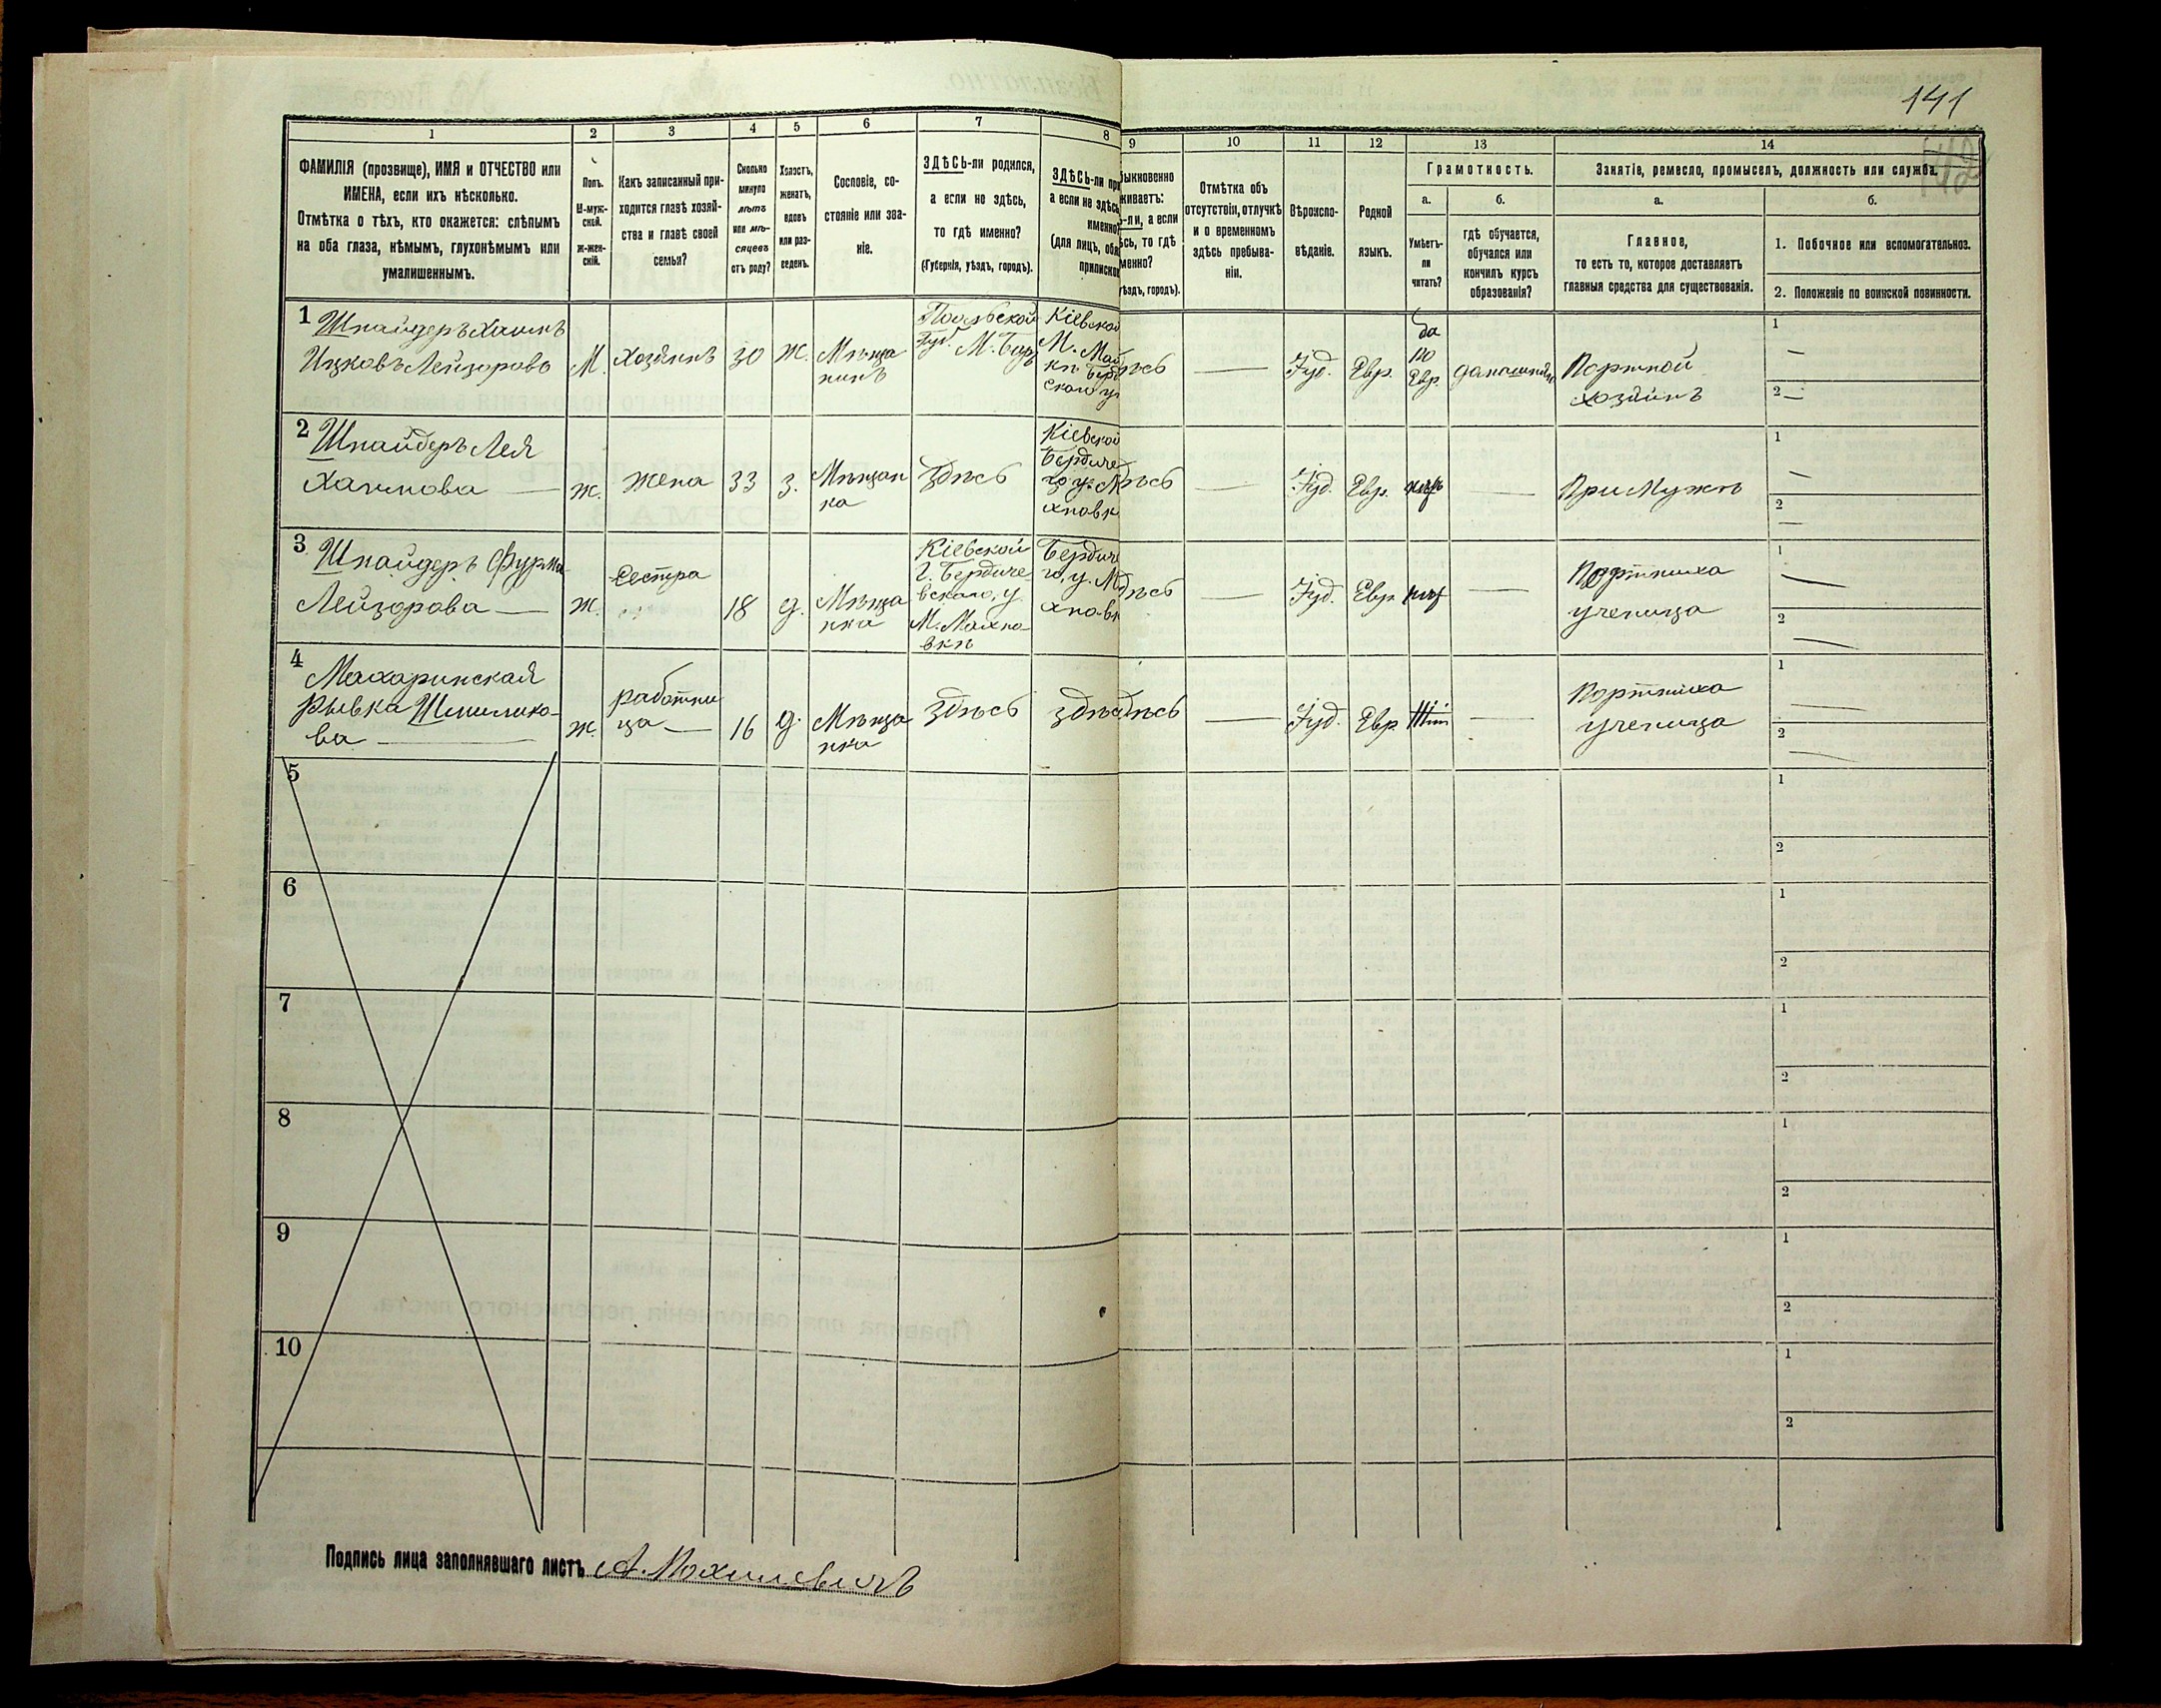 141
1 2 3 4 5 6 7 8 9 10 11 12 13 14
ФАМИЛІЯ (прозвище), ИМЯ и ОТЧЕСТВО или
ИМЕНА, если ихъ нѣсколько.
Отмѣтка о тѣхъ, кто окажется: слѣпымъ
на оба глаза, нѣмымъ, глухонѣмымъ или
умалишеннымъ.
Полъ.
М-муж-
ской.
Ж-жен-
скій.
Какъ записанный при-
ходится главѣ хозяй-
ства и главѣ своей
семьи?
Сколько
минуло
лѣтъ
или мѣ-
сяцевъ
отъ роду?
Холостъ,
женатъ,
вдовъ
или раз-
веденъ.
Сословіе, со-
стояніе или зва-
ніе.
ЗДѢСЬ-ли родился,
а если не здѣсь,
то гдѣ именно?
(Губернія, уѣздъ, городъ).
ЗДѢСЬ-ли при
а если не здѣсь
именно?
(для лицъ, обя
приписко
быкновенно
живаетъ:
-ли, а если
ѣсь, то гдѣ
менно?
уѣздъ, городъ).
Отмѣтка объ
отсутствіи, отлучкѣ
и о временномъ
здѣсь пребыва-
ніи.
Вѣроиспо-
вѣданіе.
Родной
языкъ.
Грамотность.
а.
Умѣетъ-
ли
читать?
б.
гдѣ обучается,
обучался или
кончилъ курсъ
образованія?
Занятіе, ремесло, промыселъ, должность или служба.
а.
Главное,
то есть то, которое доставляетъ
главныя средства для существованія.
б.
1. Побочное или вспомогательное.
2. Положеніе по воинской повинности.
1 Шнайдеръ Хаимъ
Ицковъ Лейзоровъ
М.
Хозяинъ
30
Ж.
Мѣща
нинъ
Губ.
Кіевской
ѣсь
—
Іуд.
Евр.
да
по
Евр.
Портной
хозяинъ
1 —
2 —
2 Шнайдеръ Лея
Хаимова —
Ж.
Жена
33
З.
Мѣщан
ка
Здѣсь
Кіевской
Бердиче
го у. М
хновк
ѣсь
—
Іуд.
Евр.
—
При Мужѣ
1 —
2 —
3 Шнайдеръ Фурма
Лейзорова —
Ж.
Сестра
18
д.
Мѣща
нка
Кіевской
Г. Бердиче-
вскаго, у.
М. Махно-
вкѣ
Бердич
го, у. М
ахновк
дѣсь
—
Іуд.
Евр.
—
Портниха
ученица
1 —
2 —
4 Махаринская
Рывка Шмилико-
ва —
Ж.
работни
ца —
16
д.
Мѣща
нка
Здѣсь
здѣс
дѣсь
—
Іуд.
Евр.
—
Портниха
ученица
1 —
2 —
5
1
2
6
1
2
7
1
2
8
1
2
9
1
2
10
1
2
Подпись лица заполнявшаго листъ